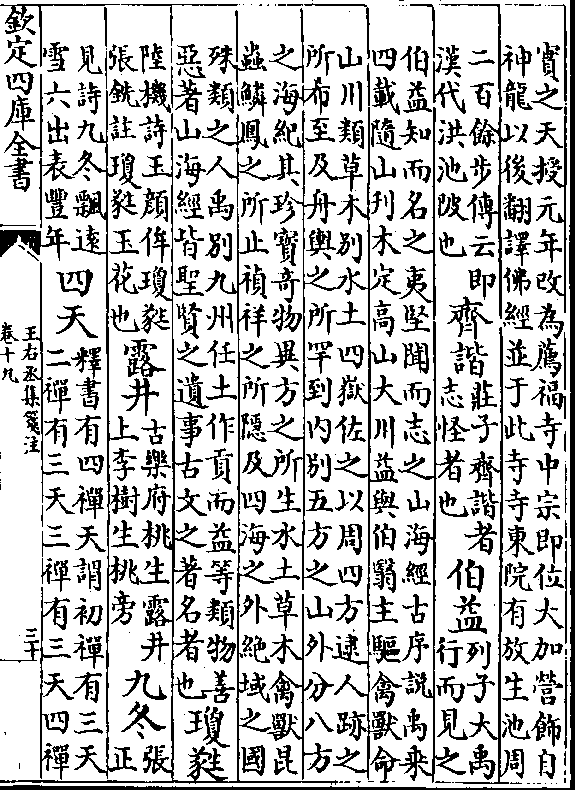 實之天授元年改為薦福寺中宗即位大加營飾自
神龍以後翻譯佛經並于此寺寺東院有放生池周
二百餘步傳云即
漢代洪池陂也
齊諧
莊子齊諧者
志怪者也
伯益
列子大禹
行而見之
伯益知而名之夷堅聞而志之山海經古序說禹乘
四載隨山刊木定高山大川益與伯翳主驅禽獸命
山川類草木别水土四嶽佐之以周四方逮人跡之
所布至及舟輿之所罕到内别五方之山外分八方
之海紀其珍寶奇物異方之所生水土草木禽獸昆
蟲鱗鳳之所止禎祥之所隠及四海之外絶域之國
殊類之人禹别九州任土作貢而益等類物善
惡著山海經皆聖賢之遺事古文之著名者也
瓊蕤
陸機詩玉顔侔瓊蕤
張銑註瓊蕤玉花也
露井
古樂府桃生露井
上李樹生桃旁
九冬
張
正
見詩九冬飄遠
雪六出表豐年
四天
釋書有四禪天謂初禪有三天
二禪有三天三禪有三天四禪
欽定四庫全書
王右丞集箋注
卷十九
三十